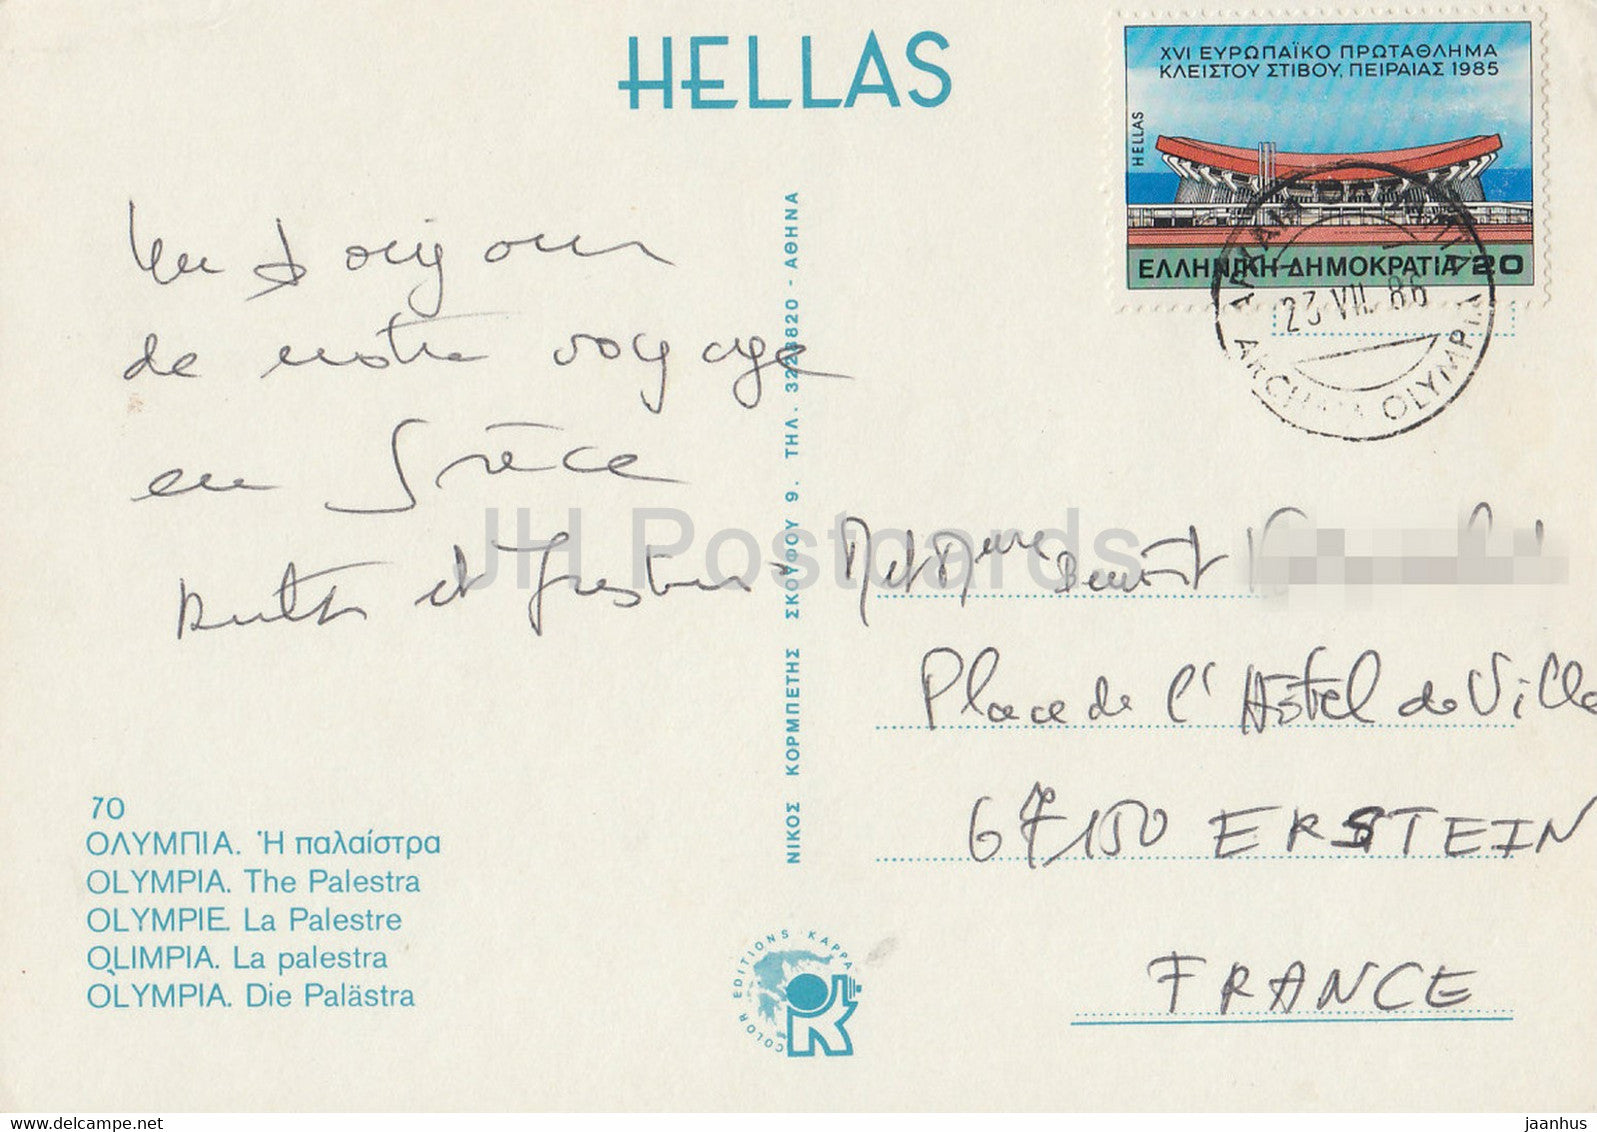 HELLAS
XVI ΕΥΡΩΠΑΪΚΟ ΠΡΩΤΑΘΛΗΜΑ
ΚΛΕΙΣΤΟΥ ΣΤΙΒΟΥ, ΠΕΙΡΑΙΑΣ 1985
HELLAS
ΕΛΛΗΝΙΚΗ ΔΗΜΟΚΡΑΤΙΑ 20
23 VII. 86
OLYMPIA
Un bonjour
de notre voyage
en Grèce
et
ΝΙΚΟΣ ΚΟΡΜΠΕΤΗΣ ΣΚΟΥΦΟΥ 9. ΤΗΛ. 3228820 - ΑΘΗΝΑ
JH Postcards
M et Mme Benoît
Place de l'Hôtel de Ville
67150 ERSTEIN
FRANCE
70
ΟΛΥΜΠΙΑ. Ἡ παλαίστρα
OLYMPIA. The Palestra
OLYMPIE. La Palestre
OLIMPIA. La palestra
OLYMPIA. Die Palästra
COLOR EDITIONS KAPPA
K
www.delcampe.net
jaanhus